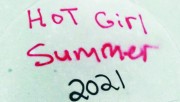 HOT GIRL
Summer
2021